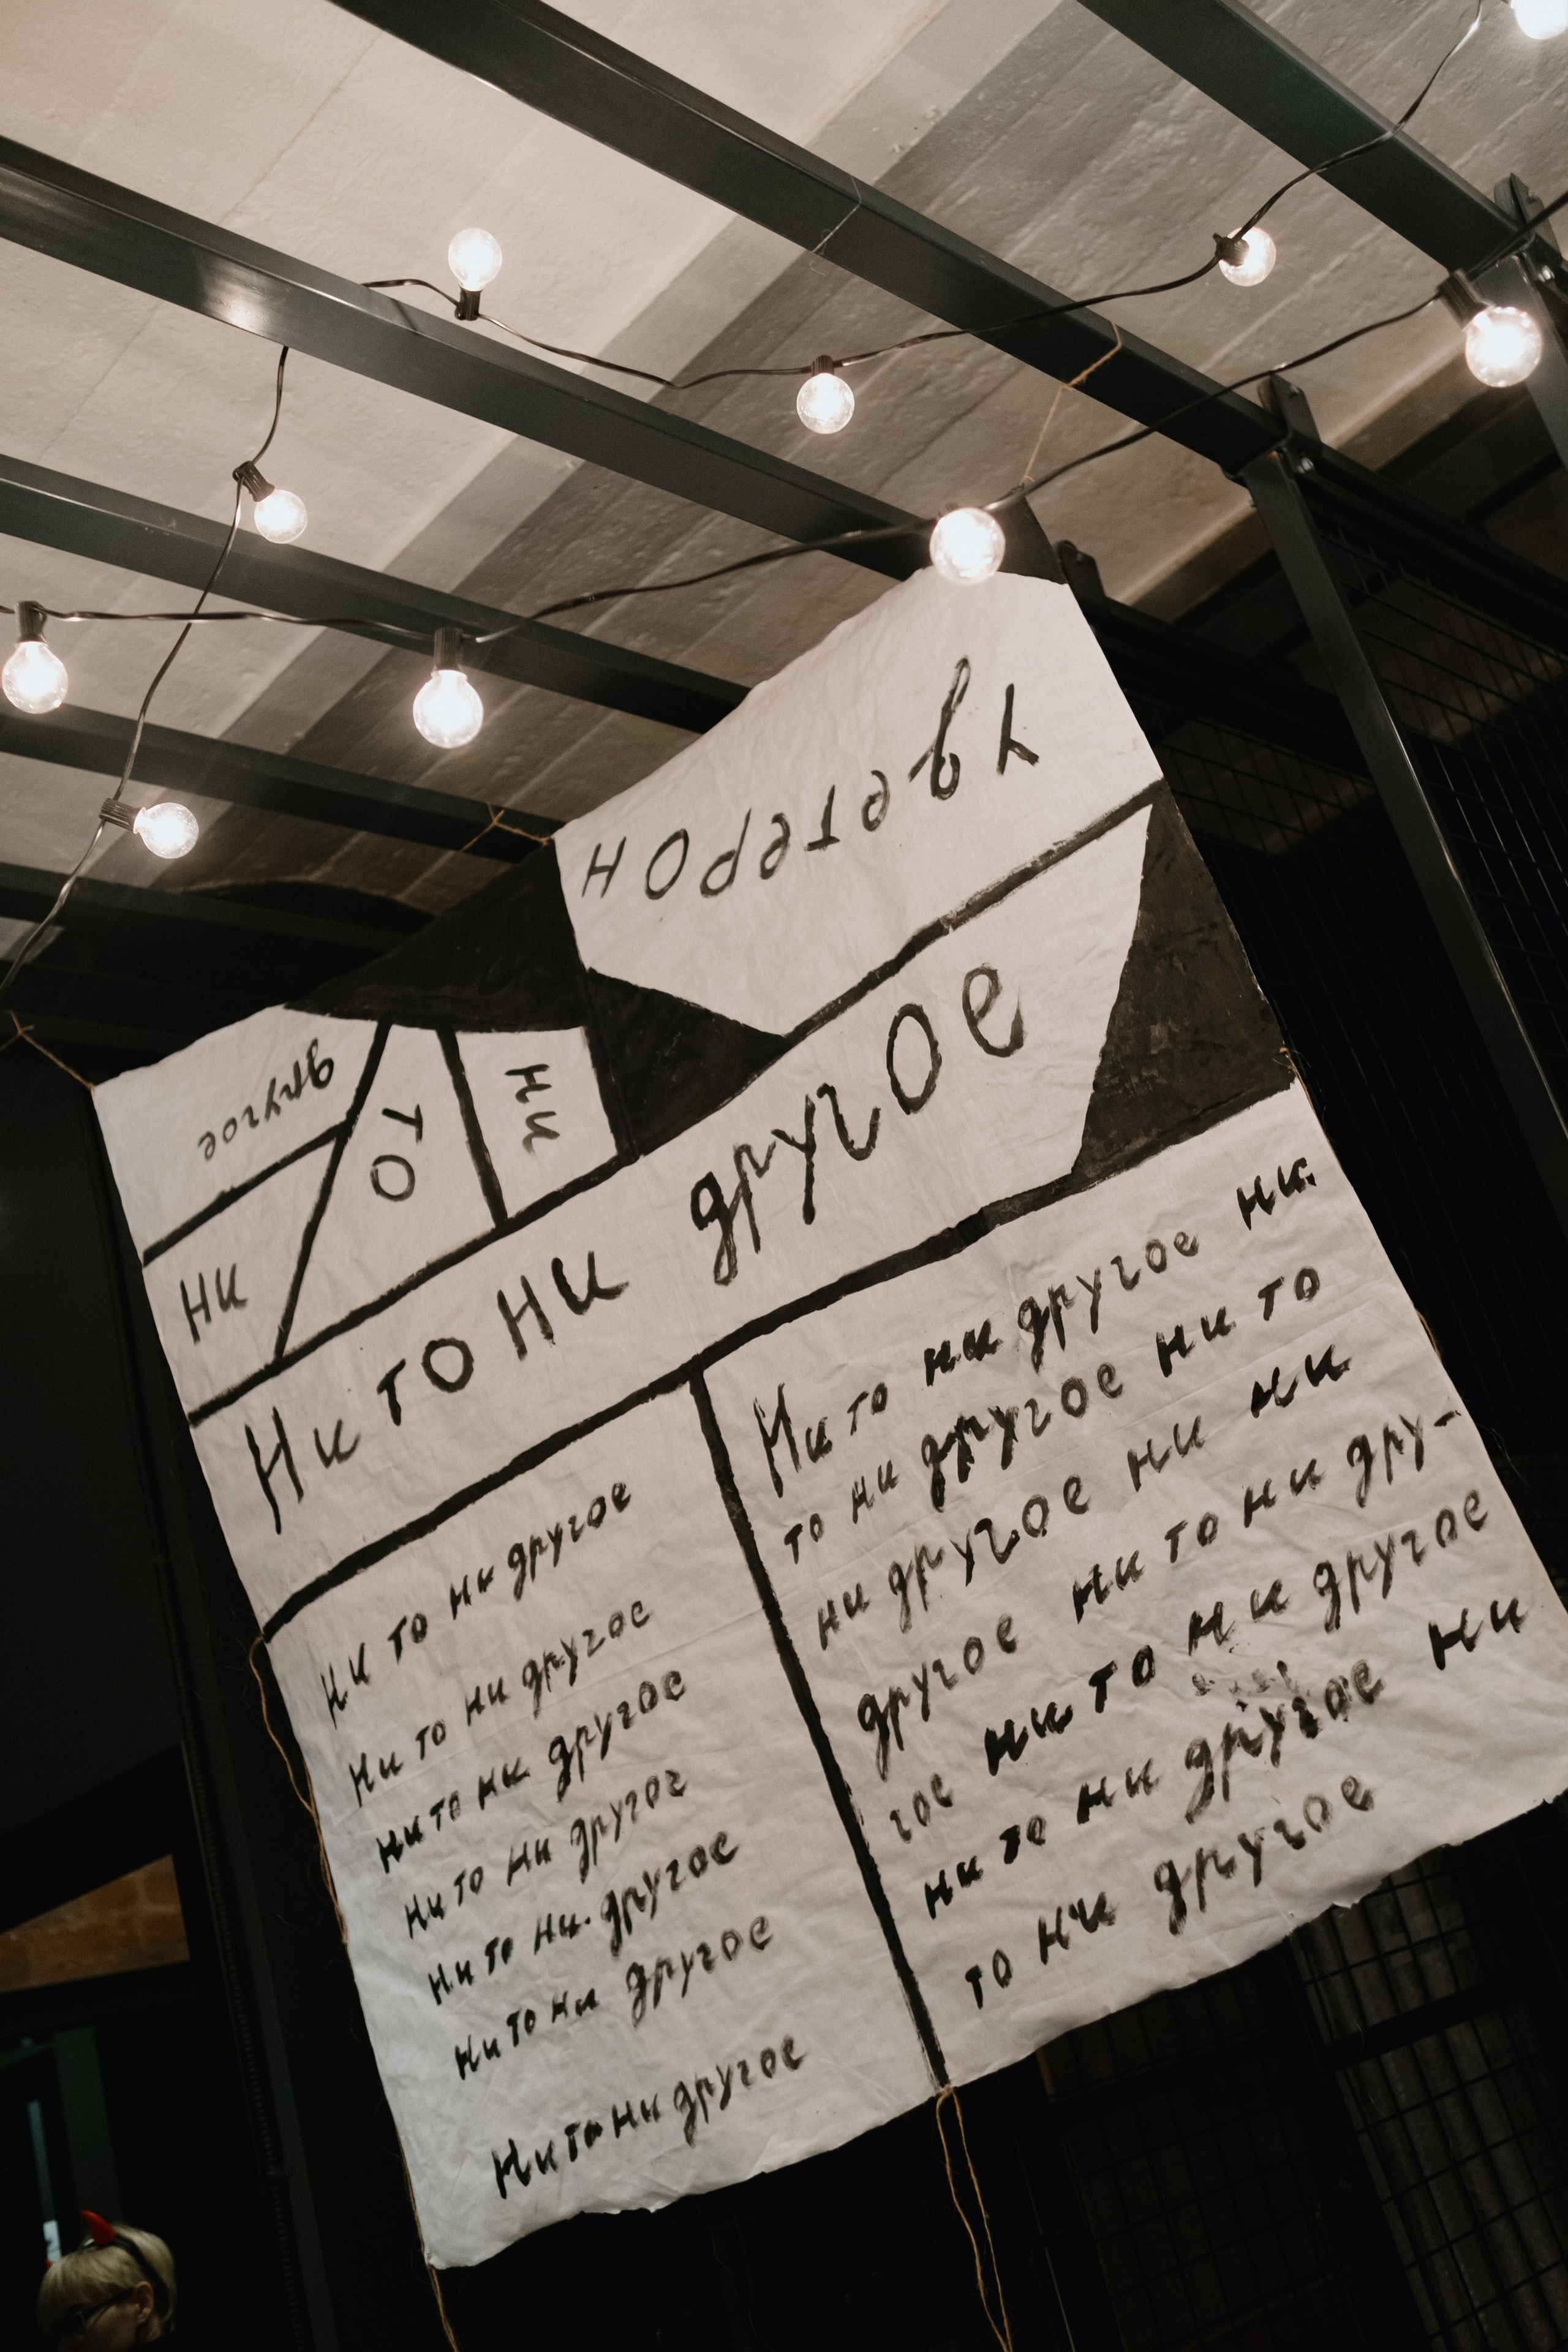 Удетерон
другое
ни
то
ни
Ни то ни другое
Ни то ни другое
Ни то ни другое
Ни то ни другое
Ни то ни другое
Ни то ни другое
Ни то ни другое
Ни то ни другое
Ни то ни другое ни
то ни другое ни то
ни другое ни ни
другое ни то ни дру-
гое ни то ни другое
ни то ни другое ни
то ни другое